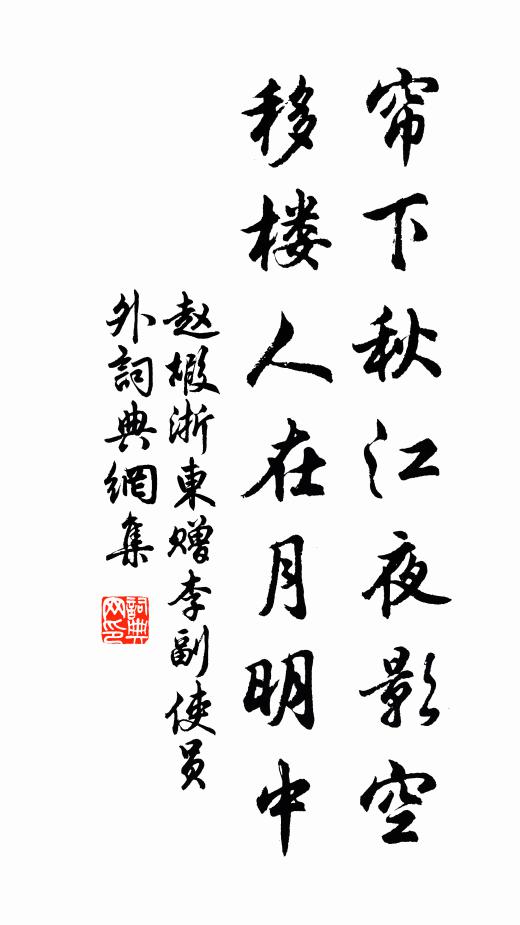 帘下秋江夜影空
移楼人在月明中
赵嘏浙东赠李副使员
外詞典網集
詞典
网印